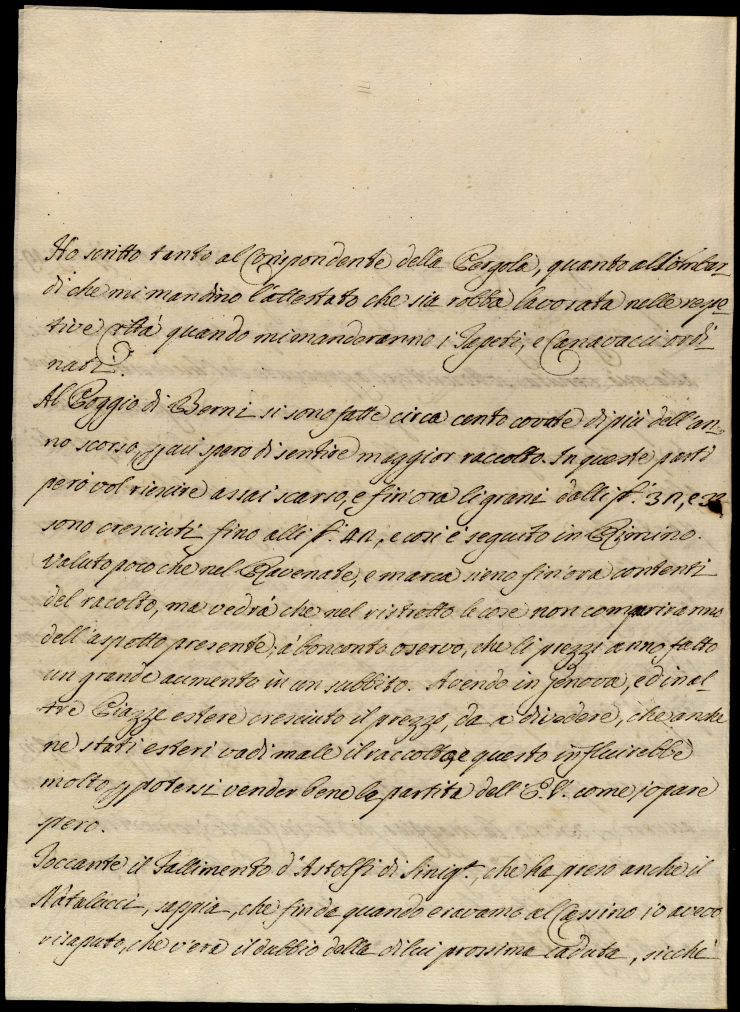 Ho scritto tanto al Corispondente della Pergola, quanto al Lombar
di che mi mandino l'attestato che sia robba lavorata nelle respe
tive Città quando mi manderanno i Tapeti, e Canavacci ordi
nari.
Al Poggio di Berni si sono fatte circa cento covate di più dell'an,,
no scorso, qui spero di sentire maggior raccolto. In queste parti
però vol riescire assai scarso, e fin'ora li grani dalli
sono cresciuti fino alli e così è seguito in Rimino.
Valuto poco che nel Ravenate, e marca sieno fin'ora contenti
del racolto, ma vedrà che nel ristretto le cose non compariranno
dell'aspetto presente; a bonconto oservo, che li prezzi anno fatto
un grande aumento in un subbito. Avendo in Genova, ed in al-
tre Piazze estere cresciuto il prezzo, da a divedere, che anche
ne stati esteri vadi male il raccolto, e questo influirebbe
molto potersi vender bene le partita dell'E.V. come jo pare
spero.
Toccante il Fallimento d'Astolfi di Sinig.ª, che ha preso anche il
Natalucci, sappia, che fin da quando eravamo al Cassino io avevo
risaputo, che v'era il dubbio della di lui prossima caduta, sicchè